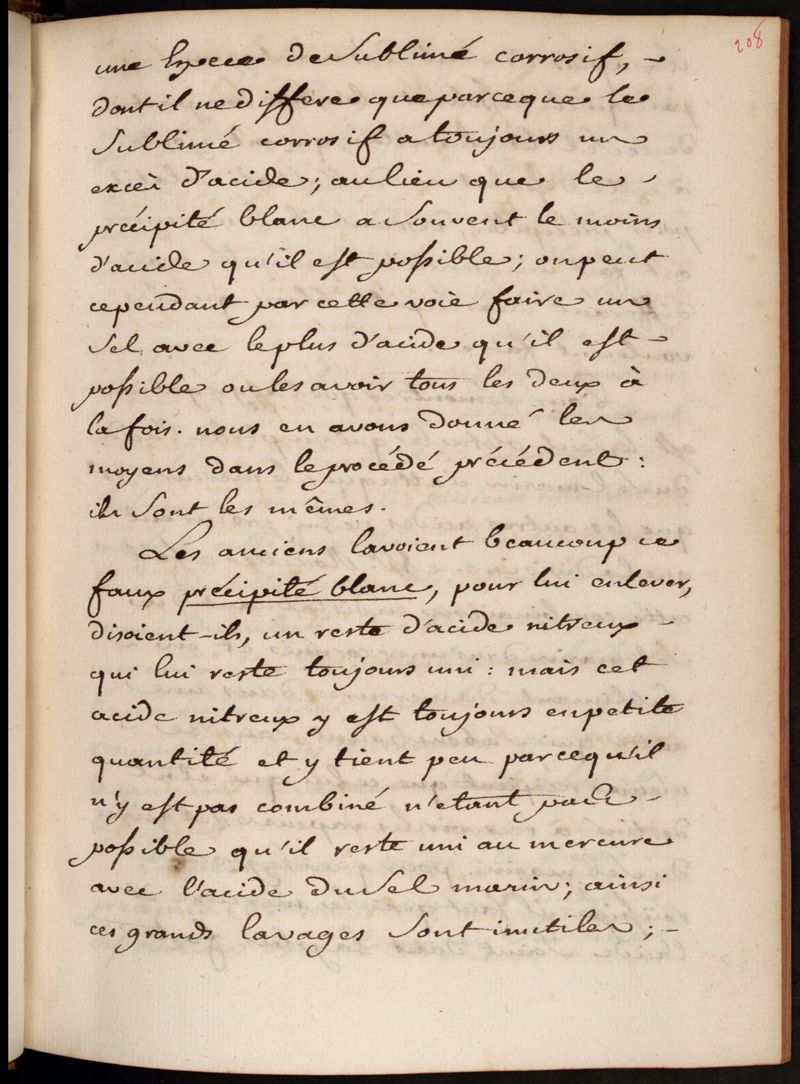 208
une Espece de Sublimé corrosif, -
dont il ne differe que parceque le
Sublimé corrosif a toujours un
excès d'acide; au lieu que le -
précipité blanc a Souvent le moins
d'acide qu'il est possible; on peut
cependant par cette voie faire un
Sel avec le plus d'acide qu'il est -
possible ou les avoir tous les deux à
la fois. nous en avons donné les
moyens dans le procédé précédent:
ils Sont les mêmes.
Les anciens lavoient beaucoup ce
faux précipité blanc, pour lui enlever,
disoient-ils, un reste d'acide nitreux -
qui lui reste toujours uni: mais cet
acide nitreux y est toujours en petite
quantité et y tient peu parcequ'il
n'y est pas combiné n'etant pas -
possible qu'il reste uni au mercure
avec l'acide du Sel marin; ainsi
ces grands lavages Sont inutiles; -